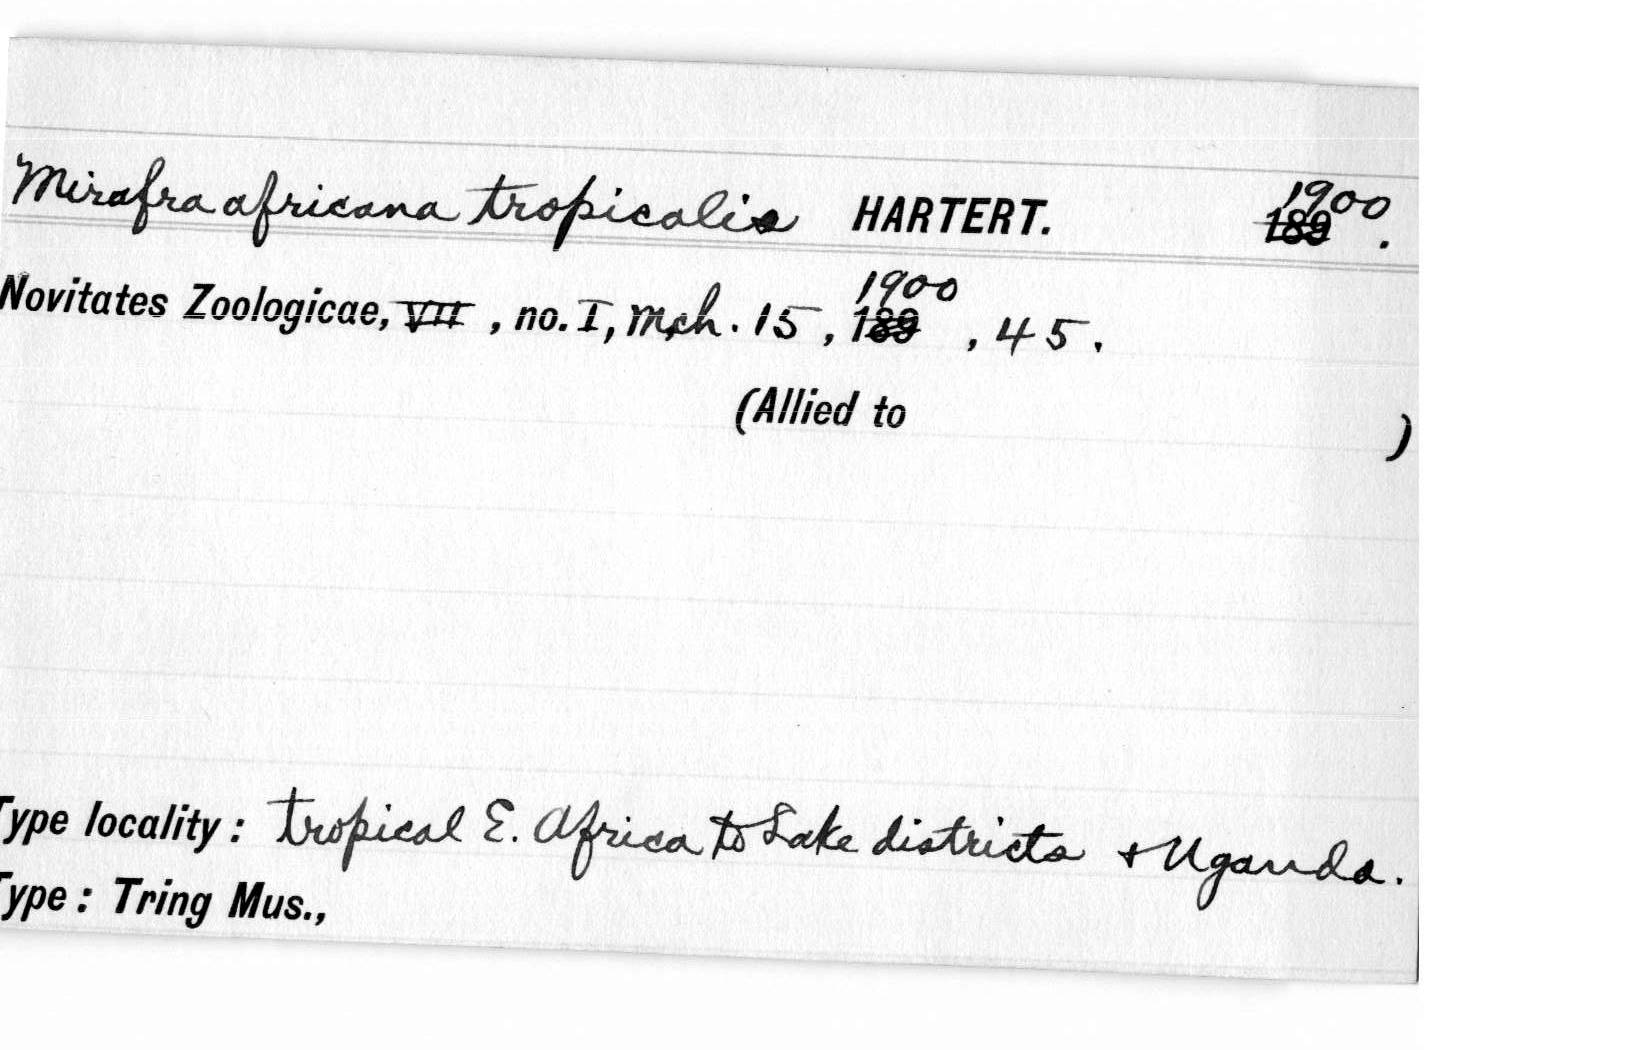 Mirafra africana tropicalis HARTERT. 1900 189 .
Novitates Zoologicae, VII , no. I, Mch. 15 , 1900 189 , 45 .
(Allied to )
Type locality : tropical E. Africa to Lake districts + Uganda.
Type : Tring Mus.,